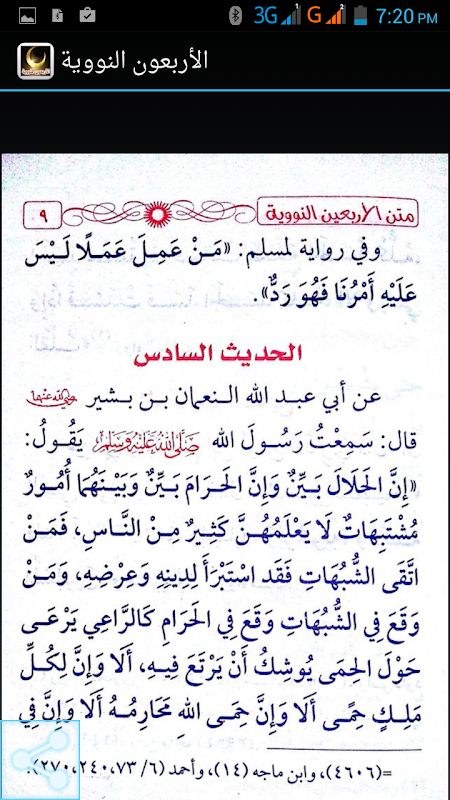 3G 1 G 2 7:20 PM
الأربعون النووية
متن الأربعين النووية ٩
وفي رواية لمسلم: «مَنْ عَمِلَ عَمَلًا لَيْسَ
عَلَيْهِ أَمْرُنَا فَهُوَ رَدٌّ».
الحديث السادس
عن أبي عبد الله النعمان بن بشير رضي الله عنهما
قال: سَمِعْتُ رَسُولَ الله صَلَّى اللهُ عَلَيْهِ وَسَلَّمَ يَقُولُ:
«إِنَّ الْحَلَالَ بَيِّنٌ وَإِنَّ الْحَرَامَ بَيِّنٌ وَبَيْنَهُمَا أُمُورٌ
مُشْتَبِهَاتٌ لَا يَعْلَمُهُنَّ كَثِيرٌ مِنْ النَّاسِ، فَمَنْ
اتَّقَى الشُّبُهَاتِ فَقَد اسْتَبْرَأَ لِدِينِهِ وَعِرْضِهِ، وَمَنْ
وَقَعَ فِي الشُّبُهَاتِ وَقَعَ فِي الْحَرَامِ كَالرَّاعِي يَرْعَى
حَوْلَ الْحِمَى يُوشِكُ أَنْ يَرْتَعَ فِيهِ، أَلَا وَإِنَّ لِكُلِّ
مَلِكٍ حِمًى أَلَا وَإِنَّ حِمَى اللهِ مَحَارِمُهُ أَلَا وَإِنَّ فِي
=(٤٦٠٦)، وابن ماجه (١٤)، وأحمد (٦/ ٧٣، ٢٤٠، ٢٧٠).